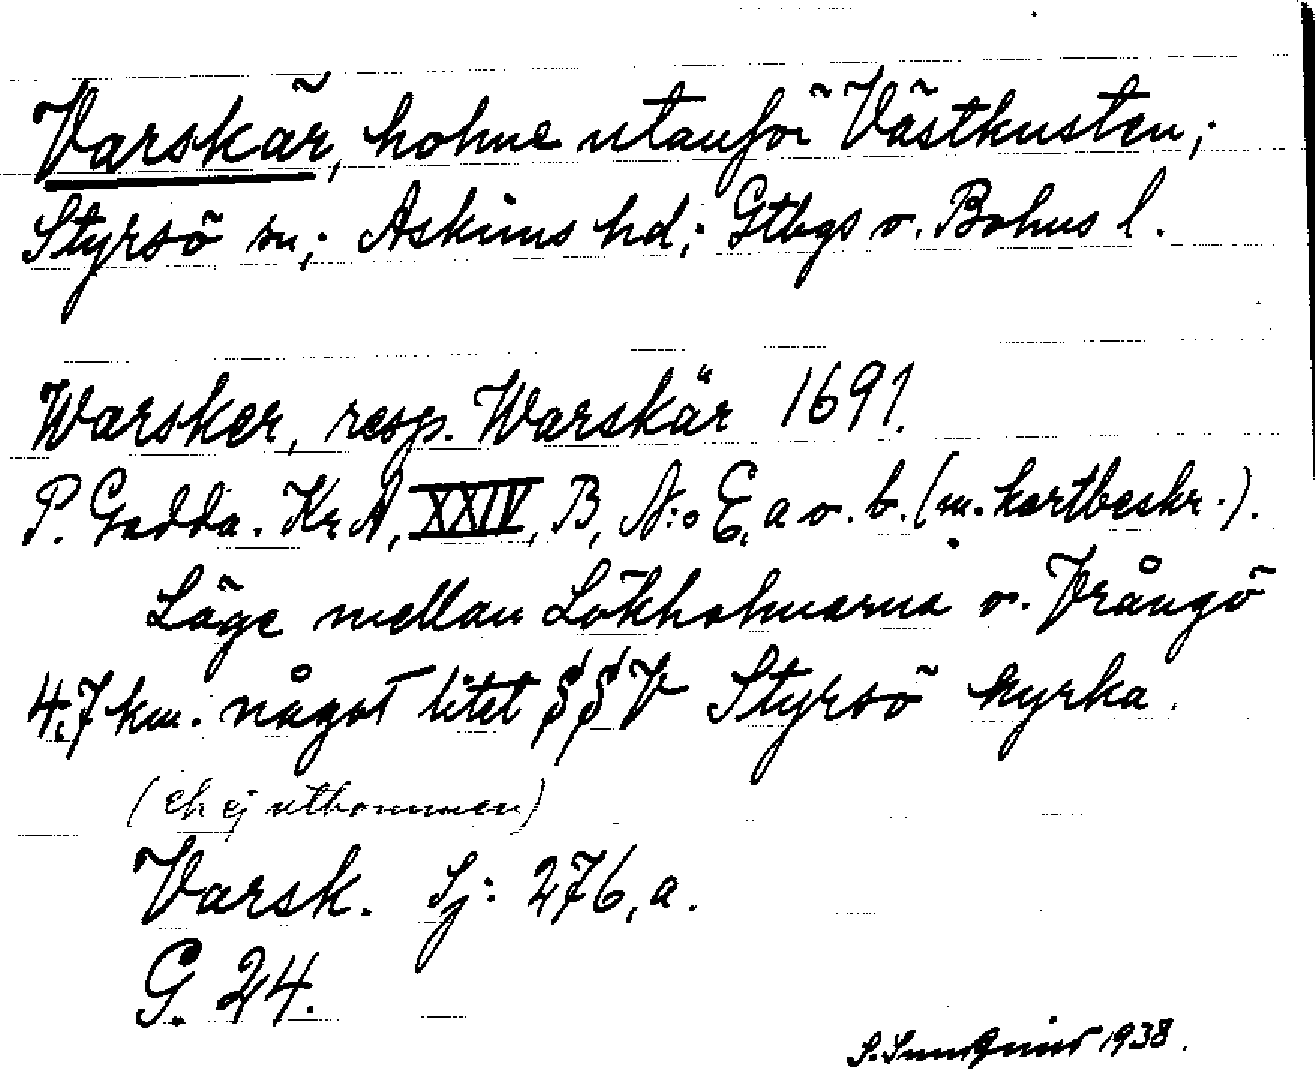 Varskär, holme utanför Västkusten;
Styrsö sn; Askims hd; Gtbgs o. Bohus l.
Warsker, resp. Warskär 1691.
P. Gedda. Kr A, XXIV, B, N:o E, a o. b. (m. kartbeskr.).
Läge mellan Lökholmarna o. Vrångö
4.7 km. något litet §§V Styrsö kyrka.
(ek ej utkommen)
Varsk. Sj: 276, a.
G. 24.
S. Sundquist 1938.